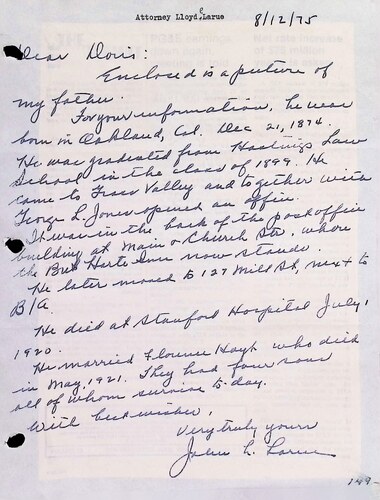 Attorney Lloyd Larue
8/12/75
Dear Doris:
Enclosed is a picture of
my father.
For your information, he was
born in Oakland, Cal. Dec 21, 1874.
He was graduated from Hastings Law
School in the class of 1899. He
came to Grass Valley and together with
George L. Jones opened an office.
It was in the back of the post office
building at Main & Church Sts, where
the Bret Harte Inn now stands.
He later moved to 127 Mill St, next to
B/A.
He died at Stanford Hospital July 1,
1920.
He married Florence who died
in May, 1921. They had four sons
all of whom survive to-day.
With best wishes,
Very truly yours
John L. Larue
149-